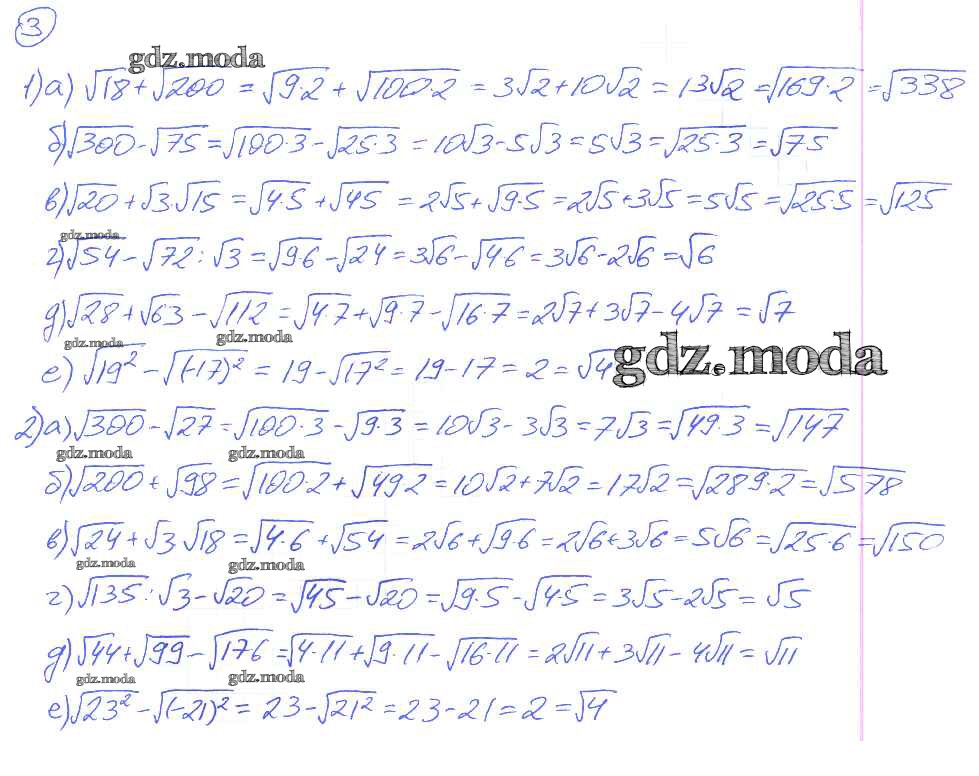 3
gdz.moda
1) а) √18 + √200 = √9·2 + √100·2 = 3√2 + 10√2 = 13√2 = √169·2 = √338
б) √300 - √75 = √100·3 - √25·3 = 10√3 - 5√3 = 5√3 = √25·3 = √75
в) √20 + √3·√15 = √4·5 + √45 = 2√5 + √9·5 = 2√5 + 3√5 = 5√5 = √25·5 = √125
gdz.moda
г) √54 - √72 : √3 = √9·6 - √24 = 3√6 - √4·6 = 3√6 - 2√6 = √6
д) √28 + √63 - √112 = √4·7 + √9·7 - √16·7 = 2√7 + 3√7 - 4√7 = √7
gdz.moda gdz.moda gdz.moda
е) √19² - √(-17)² = 19 - √17² = 19 - 17 = 2 = √4
2) а) √300 - √27 = √100·3 - √9·3 = 10√3 - 3√3 = 7√3 = √49·3 = √147
gdz.moda gdz.moda
б) √200 + √98 = √100·2 + √49·2 = 10√2 + 7√2 = 17√2 = √289·2 = √578
в) √24 + √3·√18 = √4·6 + √54 = 2√6 + √9·6 = 2√6 + 3√6 = 5√6 = √25·6 = √150
gdz.moda gdz.moda
г) √135 : √3 - √20 = √45 - √20 = √9·5 - √4·5 = 3√5 - 2√5 = √5
д) √44 + √99 - √176 = √4·11 + √9·11 - √16·11 = 2√11 + 3√11 - 4√11 = √11
gdz.moda gdz.moda
е) √23² - √(-21)² = 23 - √21² = 23 - 21 = 2 = √4